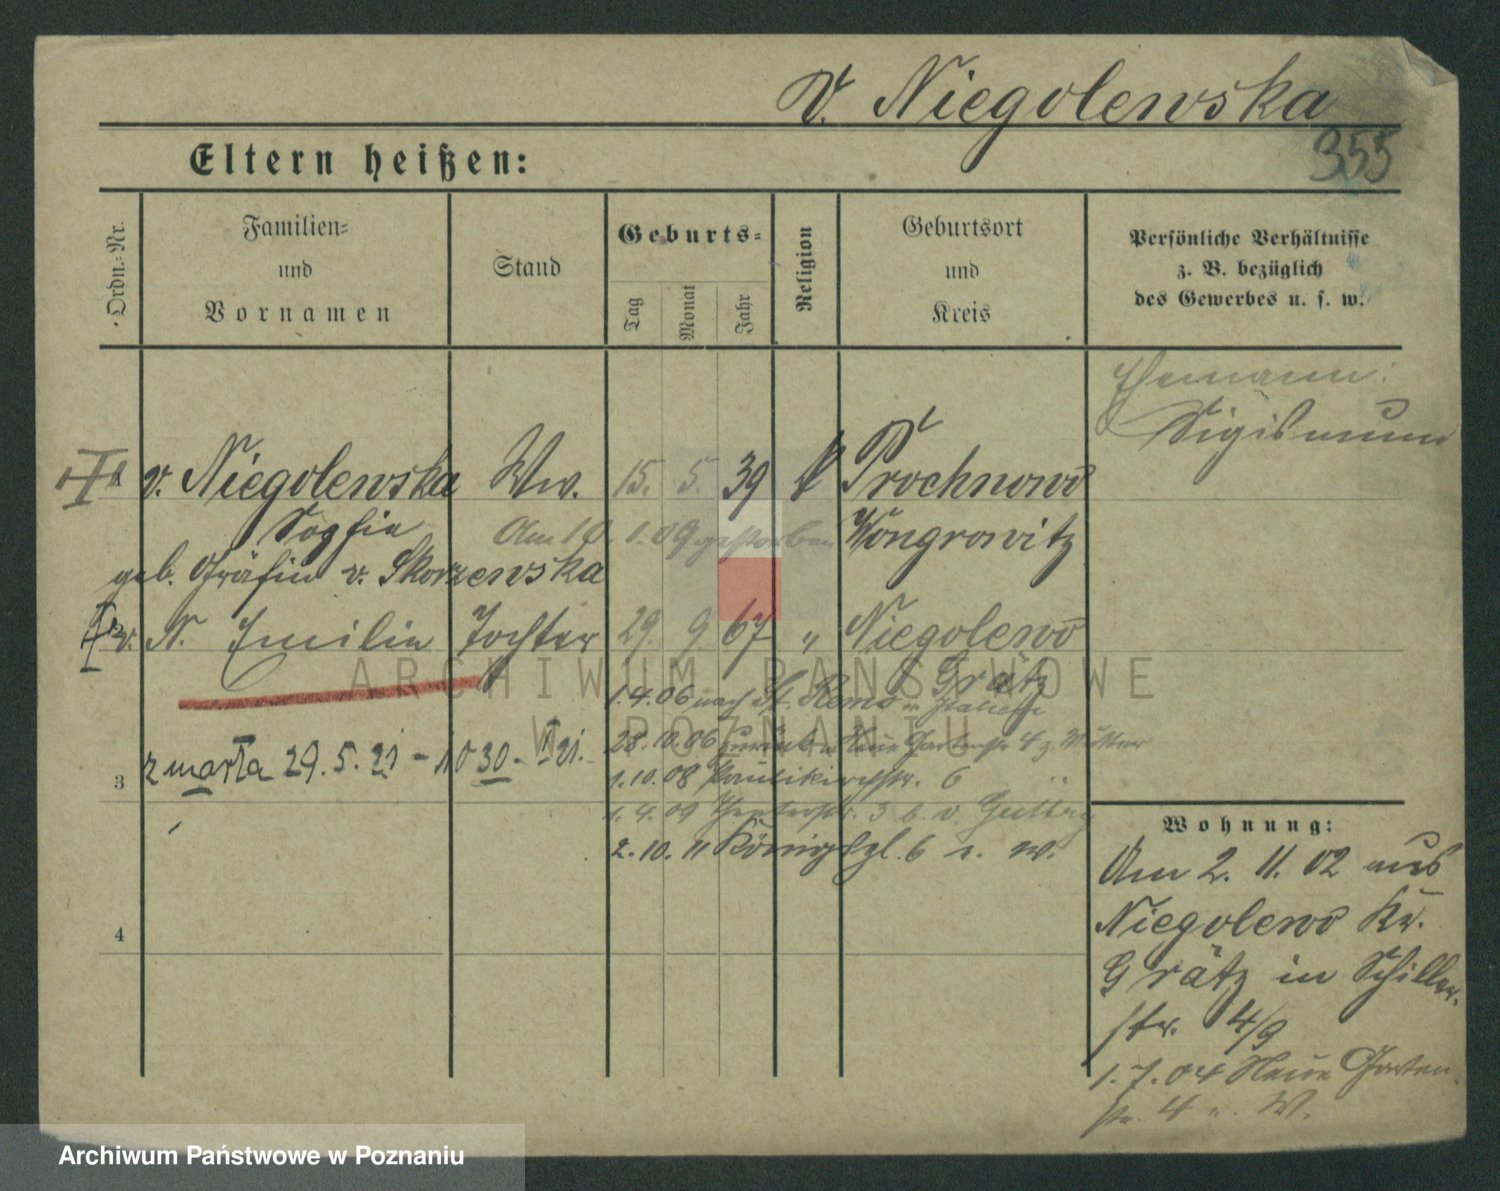 v. Niegolewska
355
Eltern heißen:
Ordn.-Nr.
Familien-
und
Vornamen
Stand
Geburts-
Tag
Monat
Jahr
Religion
Geburtsort
und
Kreis
Persönliche Verhältnisse
z. B. bezüglich
des Gewerbes u. s. w.
Ehemann:
Sigismund
v. Niegolewska Ww. 15. 5. 39 Prochnowo
Sophie Am 10. 1. 09 gestorben Wongrowitz
geb. Gräfin v. Skorzewska
v. N. Emilie Tochter 29. 9. 67 " Niegolewo
Grätz
1.4.06 nach St. Remo in Italien
28.10.06 zurück n Neue Gartenstr 4 z. Mutter
zmarła 29.5.21 - 1030 - 21.
3
1.10.08 Paulikirchstr. 6 "
1.4.09 Theaterstr. 3 b. v.
2.10.11 Königspl. 6 i. W.
4
Wohnung:
Am 2. 11. 02 aus
Niegolewo Kr.
Grätz in Schiller-
str. 4/9
1.7.04 Neue Garten-
str. 4 W.
ARCHIWUM PAŃSTWOWE
W POZNANIU
Archiwum Państwowe w Poznaniu